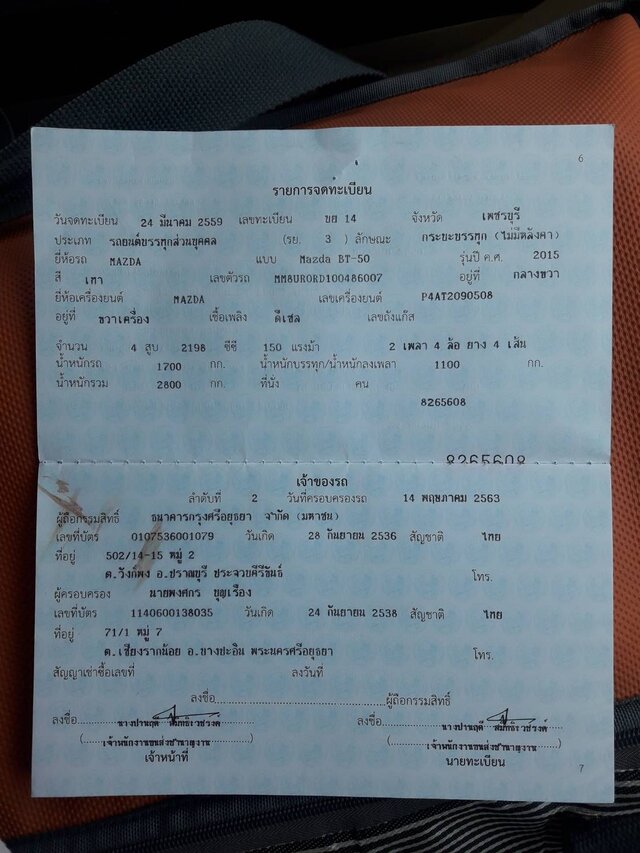 6
รายการจดทะเบียน
วันจดทะเบียน 24 มีนาคม 2559 เลขทะเบียน บย 14 จังหวัด เพชรบุรี
ประเภท รถยนต์บรรทุกส่วนบุคคล (รย. 3 ) ลักษณะ กระบะบรรทุก (ไม่มีหลังคา)
ยี่ห้อรถ MAZDA แบบ Mazda BT-50 รุ่นปี ค.ศ. 2015
สี เทา เลขตัวรถ MM8URORD100486007 อยู่ที่ กลางขวา
ยี่ห้อเครื่องยนต์ MAZDA เลขเครื่องยนต์ P4AT2090508
อยู่ที่ ขวาเครื่อง เชื้อเพลิง ดีเซล เลขถังแก๊ส
จำนวน 4 สูบ 2198 ซีซี 150 แรงม้า 2 เพลา 4 ล้อ ยาง 4 เส้น
น้ำหนักรถ 1700 กก. น้ำหนักบรรทุก/น้ำหนักลงเพลา 1100 กก.
น้ำหนักรวม 2800 กก. ที่นั่ง คน
8265608
8265608
เจ้าของรถ
ลำดับที่ 2 วันที่ครอบครองรถ 14 พฤษภาคม 2563
ผู้ถือกรรมสิทธิ์ ธนาคารกรุงศรีอยุธยา จำกัด (มหาชน)
เลขที่บัตร 0107536001079 วันเกิด 28 กันยายน 2536 สัญชาติ ไทย
ที่อยู่ 502/14-15 หมู่ 2
ต.วังก์พง อ.ปราณบุรี ประจวบคีรีขันธ์ โทร.
ผู้ครอบครอง นายพงศกร บุญเรือง
เลขที่บัตร 1140600138035 วันเกิด 24 กันยายน 2538 สัญชาติ ไทย
ที่อยู่ 71/1 หมู่ 7
ต.เชียงรากน้อย อ.บางปะอิน พระนครศรีอยุธยา โทร.
สัญญาเช่าซื้อเลขที่ ลงวันที่
ลงชื่อ ผู้ถือกรรมสิทธิ์
ลงชื่อ ลงชื่อ
(เจ้าพนักงานขนส่งชำนาญงาน) (เจ้าพนักงานขนส่งชำนาญงาน)
เจ้าหน้าที่ นายทะเบียน
7